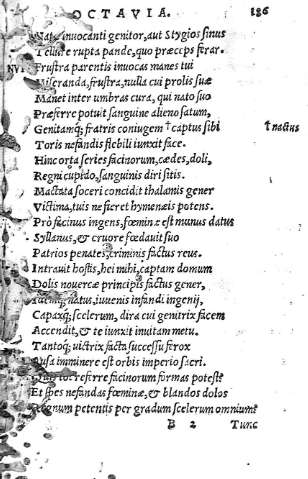 OCTAVIA. 186
Natæ invocanti genitor, aut Stygios sinus
Tellure rupta pande, quo præceps ferar.
NV Frustra parentis invocas manes tui
Miseranda, frustra, nulla cui prolis suæ
Manet inter umbras cura, qui nato suo
Præferre potuit sanguine alieno satum,
Genitamq; fratris coniugem †captus sibi †nactus
Toris nefandis flebili iunxit face.
Hinc orta series facinorum, cædes, doli,
Regni cupido, sanguinis diri sitis.
Mactata soceri concidit thalamis gener
Victima, tuis ne fieret hymenæis potens.
Prò facinus ingens, fœminæ est munus datus
Syllanus, & cruore fœdauit suo
Patrios penates, criminis factus reus.
Intrauit hostis, hei mihi, captam domum
Dolis nouercæ principis factus gener,
natus, iuuenis infandi ingenij,
Capaxq; scelerum, dira cui genitrix facem
Accendit, & te iunxit inuitam metu.
Tantoq; uictrix facta successu ferox
Ausa imminere est orbis imperio sacri.
Quis tot referre facinorum formas potest
Et spes nefandas fœminæ, & blandos dolos
Regnum petentis per gradum scelerum omnium?
B 2 Tunc